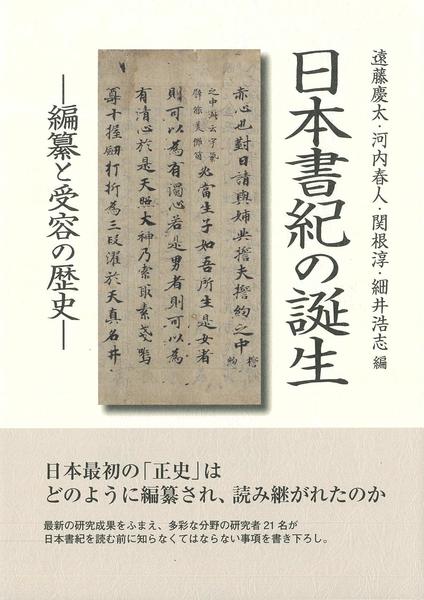 遠藤慶太・河内春人・関根淳・細井浩志 編
日本書紀の誕生
―編纂と受容の歴史―
赤心也對曰請與姉共誓夫誓約之中
誓約
之中
必當生子如吾所生是女者
則可以為有濁心若是男者則可以為
有清心於是天照大神乃索取素戔嗚
尊十握劒打折為三段濯於天真名井
日本最初の「正史」は
どのように編纂され、読み継がれたのか
最新の研究成果をふまえ、多彩な分野の研究者21名が
日本書紀を読む前に知らなくてはならない事項を書き下ろし。